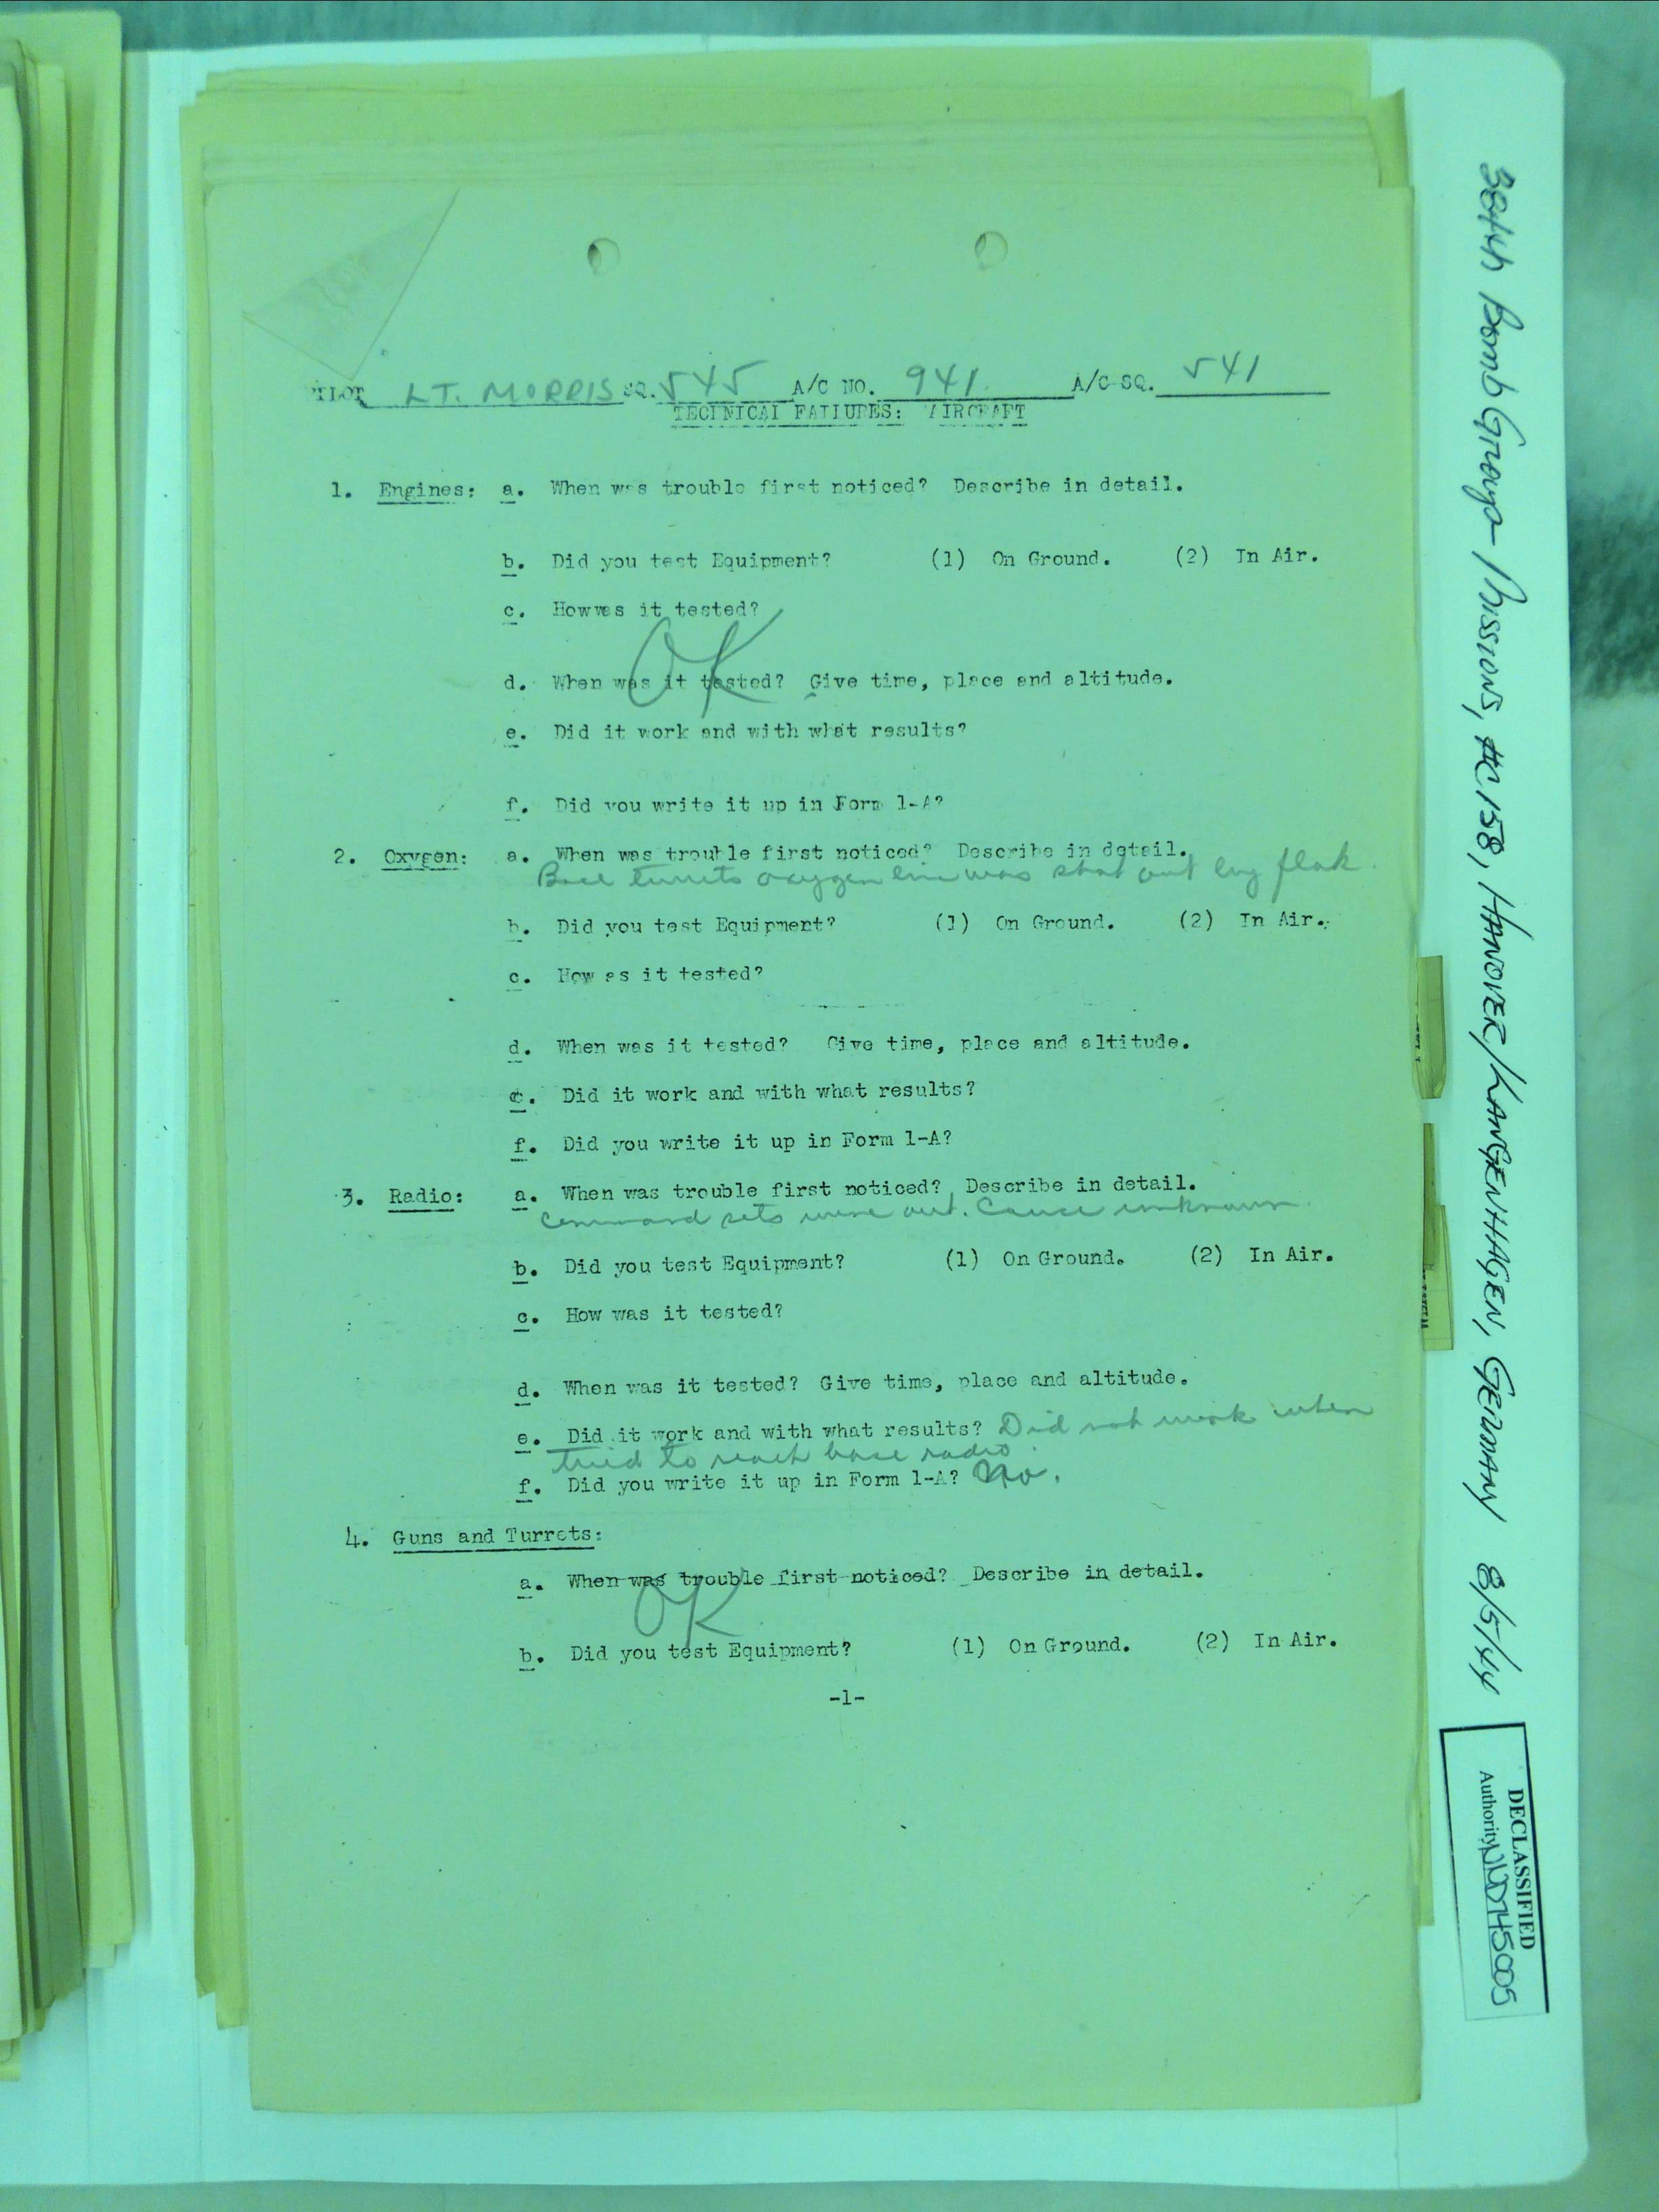 PILOT LT. MORRIS SQ. 545 A/C NO. 941 A/C SQ. 541
TECHNICAL FAILURES: AIRCRAFT
1. Engines: a. When was trouble first noticed? Describe in detail.
b. Did you test Equipment? (1) On Ground. (2) In Air.
c. How was it tested?
OK
d. When was it tested? Give time, place and altitude.
e. Did it work and with what results?
f. Did you write it up in Form 1-A?
2. Oxygen: a. When was trouble first noticed? Describe in detail.
Ball turrets oxygen line was shot out by flak.
b. Did you test Equipment? (1) On Ground. (2) In Air.
c. How as it tested?
d. When was it tested? Give time, place and altitude.
e. Did it work and with what results?
f. Did you write it up in Form 1-A?
3. Radio: a. When was trouble first noticed? Describe in detail.
Command sets were out. Cause unknown.
b. Did you test Equipment? (1) On Ground. (2) In Air.
c. How was it tested?
d. When was it tested? Give time, place and altitude.
e. Did it work and with what results? Did not work when
tried to reach base radio.
f. Did you write it up in Form 1-A? No.
4. Guns and Turrets:
a. When was trouble first noticed? Describe in detail.
OK
b. Did you test Equipment? (1) On Ground. (2) In Air.
-1-
384th Bomb Group Missions, #C158, HANOVER/LANGENHAGEN, GERMANY 8/5/44
DECLASSIFIED
Authority NND745005